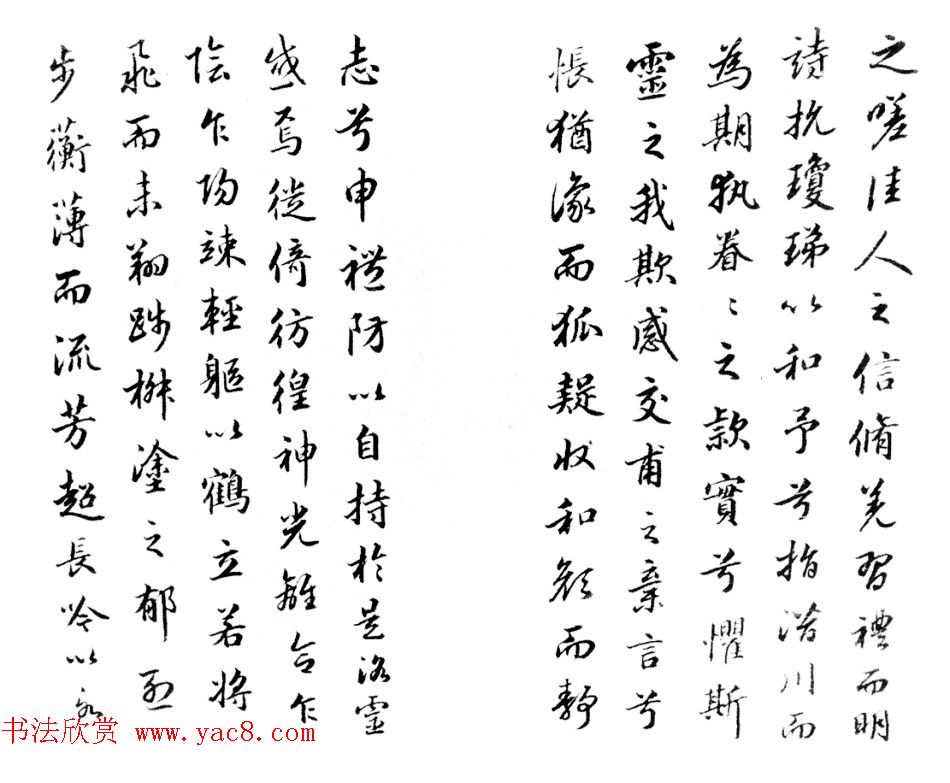 之嗟佳人之信脩羌習禮而明
詩抗瓊珶以和予兮指潛川而
為期執眷々之款實兮懼斯
靈之我欺感交甫之棄言兮
悵猶豫而狐疑收和顏而靜
志兮申禮防以自持於是洛靈
感焉徙倚彷徨神光離合乍
陰乍陽竦輕軀以鶴立若將
飛而未翔踐椒塗之郁烈
步蘅薄而流芳超長吟以永
书法欣赏 www.yac8.com